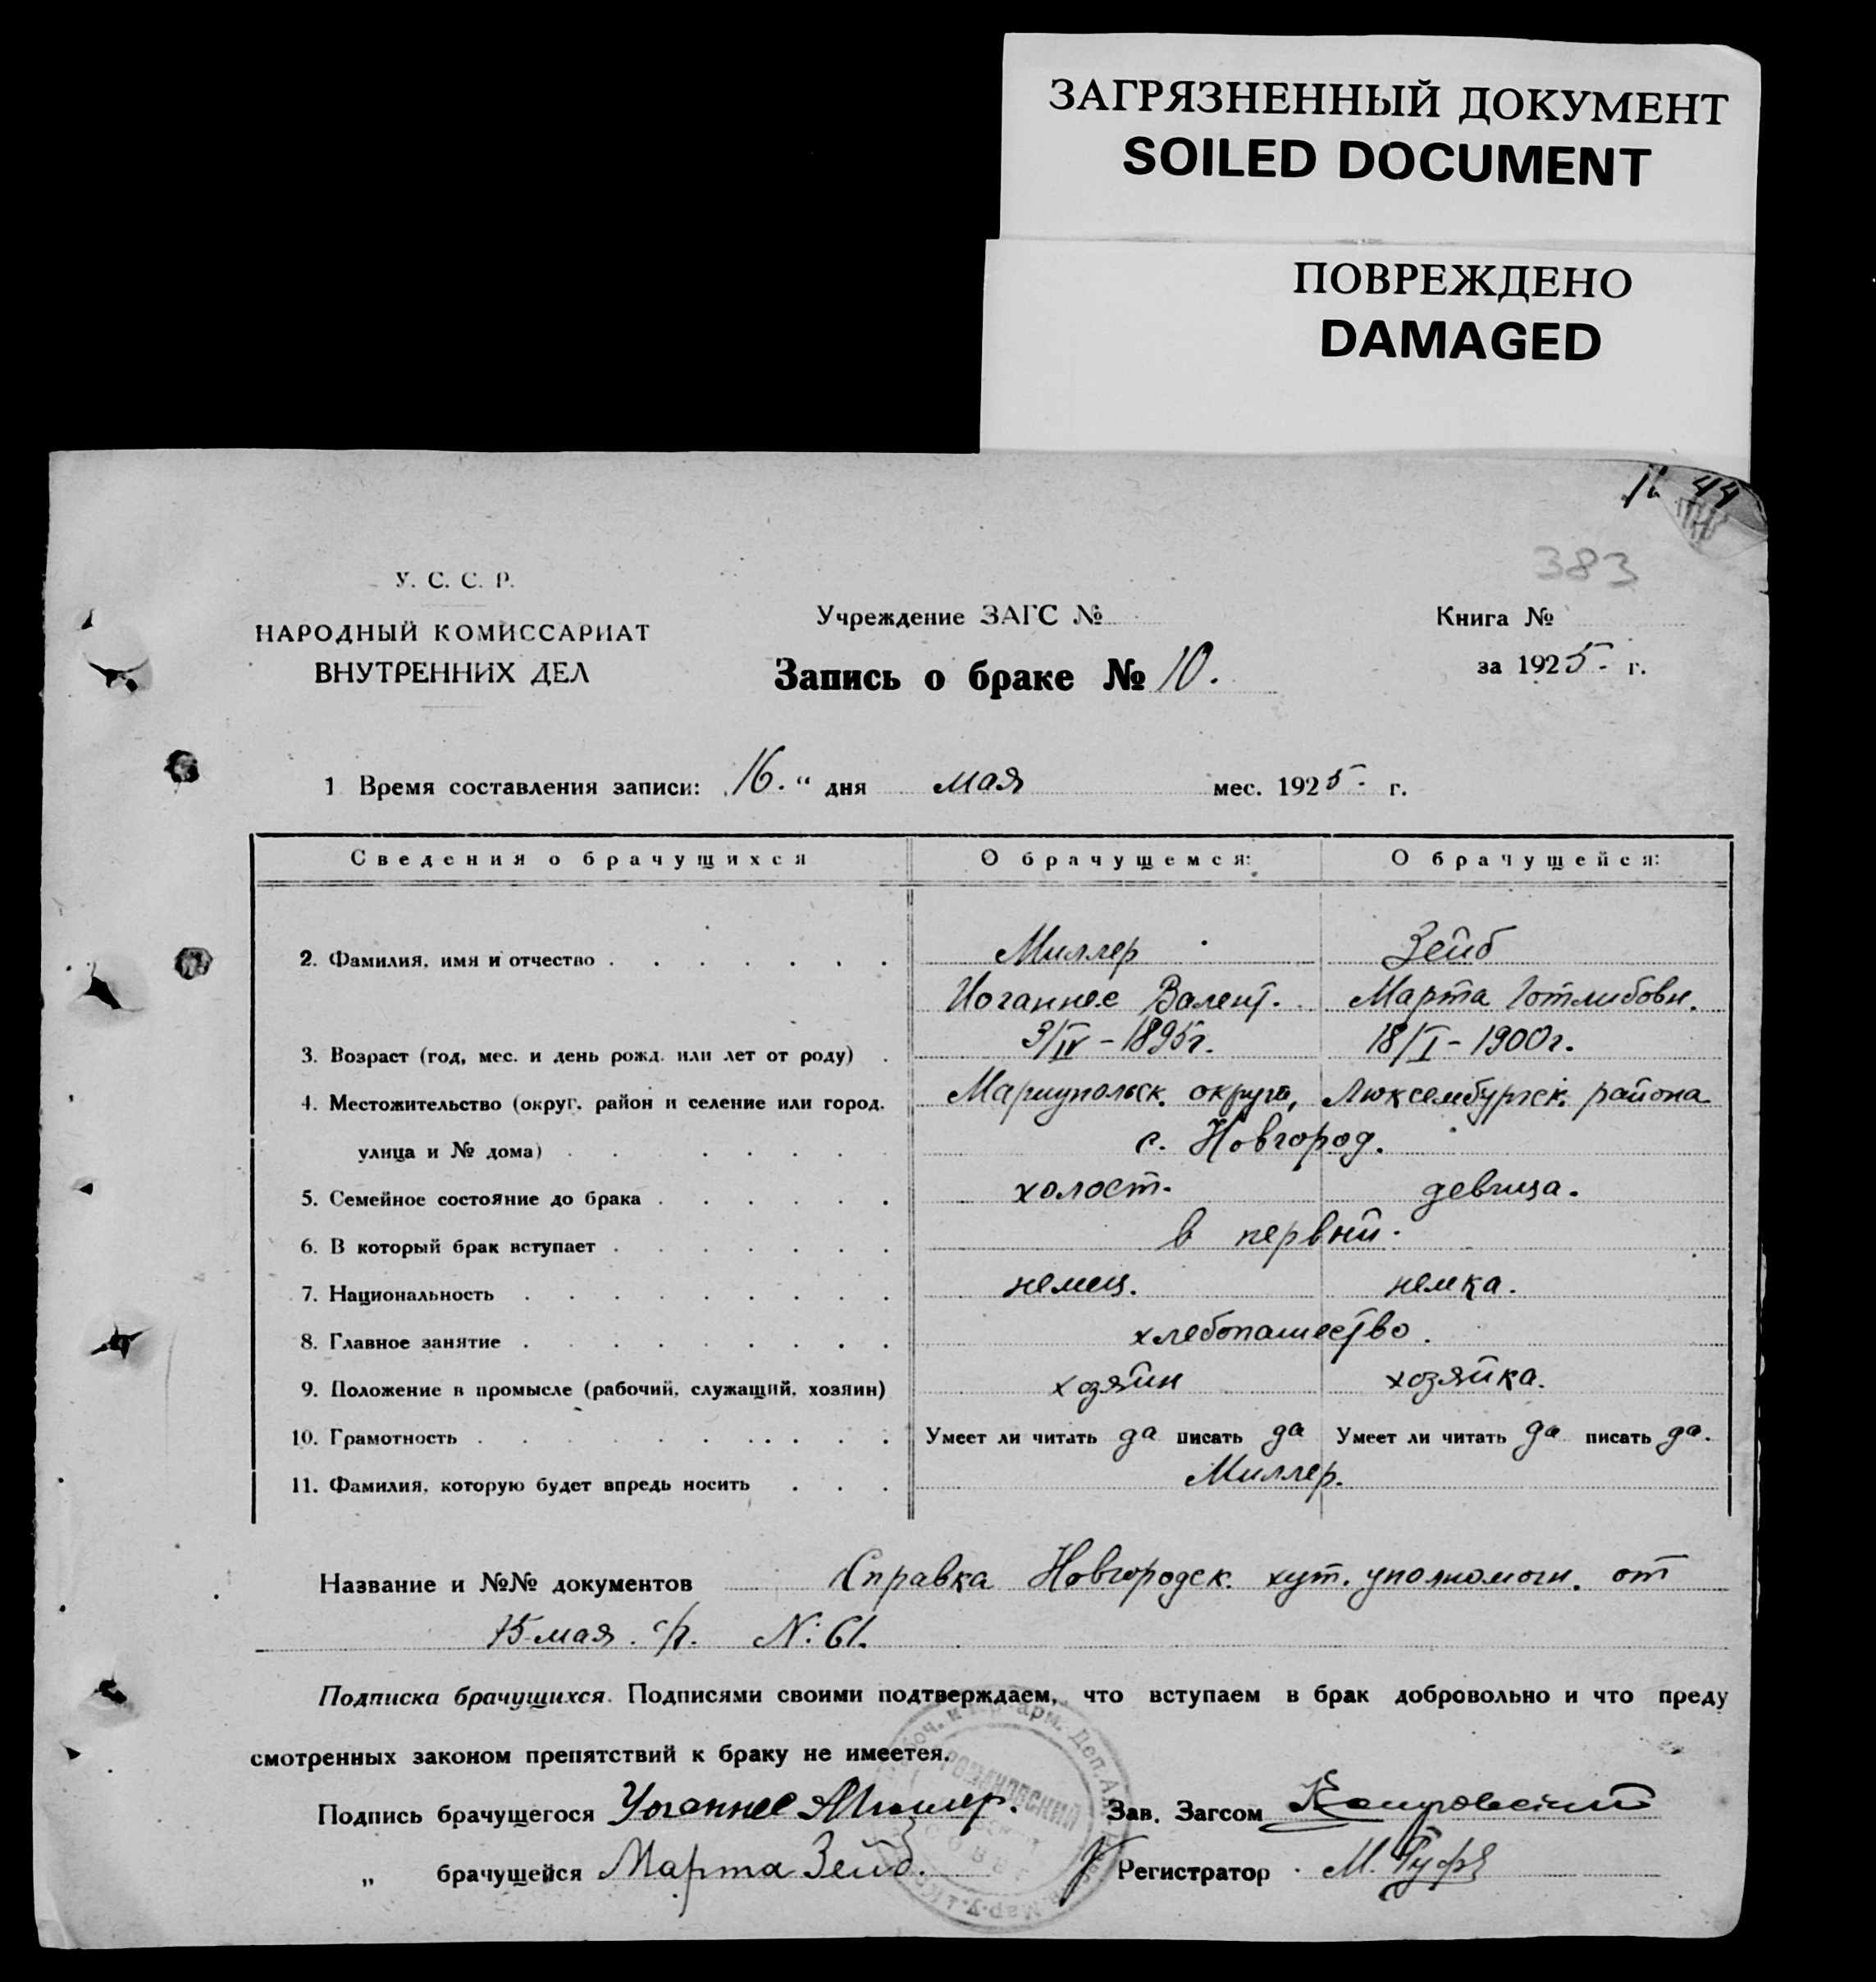 ЗАГРЯЗНЕННЫЙ ДОКУМЕНТ
SOILED DOCUMENT
ПОВРЕЖДЕНО
DAMAGED
44
383
У. С. С. Р.
НАРОДНЫЙ КОМИССАРИАТ
ВНУТРЕННИХ ДЕЛ
Учреждение ЗАГС №
Запись о браке № 10.
Книга №
за 1925 г.
1 Время составления записи: „16.“ дня мая мес. 1925 г.
Сведения о брачущихся О брачущемся: О брачущейся:
2. Фамилия, имя и отчество Миллер Зейб
Иоганнес Валент. Марта Готлибовн.
3. Возраст (год, мес. и день рожд. или лет от роду) 3/IV – 1895г. 18/I – 1900г.
4. Местожительство (округ, район и селение или город, Мариупольск. округа, Люксембургск. района
улица и № дома) с. Новгород.
5. Семейное состояние до брака холост. девица.
6. В который брак вступает в первый.
7. Национальность немец. немка.
8. Главное занятие хлебопашество.
9. Положение в промысле (рабочий, служащий, хозяин) хозяин хозяйка.
10. Грамотность Умеет ли читать да писать да Умеет ли читать да писать да.
11. Фамилия, которую будет впредь носить Миллер.
Название и №№ документов Справка Новгородск. хут. уполномочн. от
15 мая с/г. N: 61.
Подписка брачущихся. Подписями своими подтверждаем, что вступаем в брак добровольно и что преду
смотренных законом препятствий к браку не имеется.
Подпись брачущегося Иоганнес Миллер. Зав. Загсом
„ брачущейся Марта Зейб. Регистратор М.